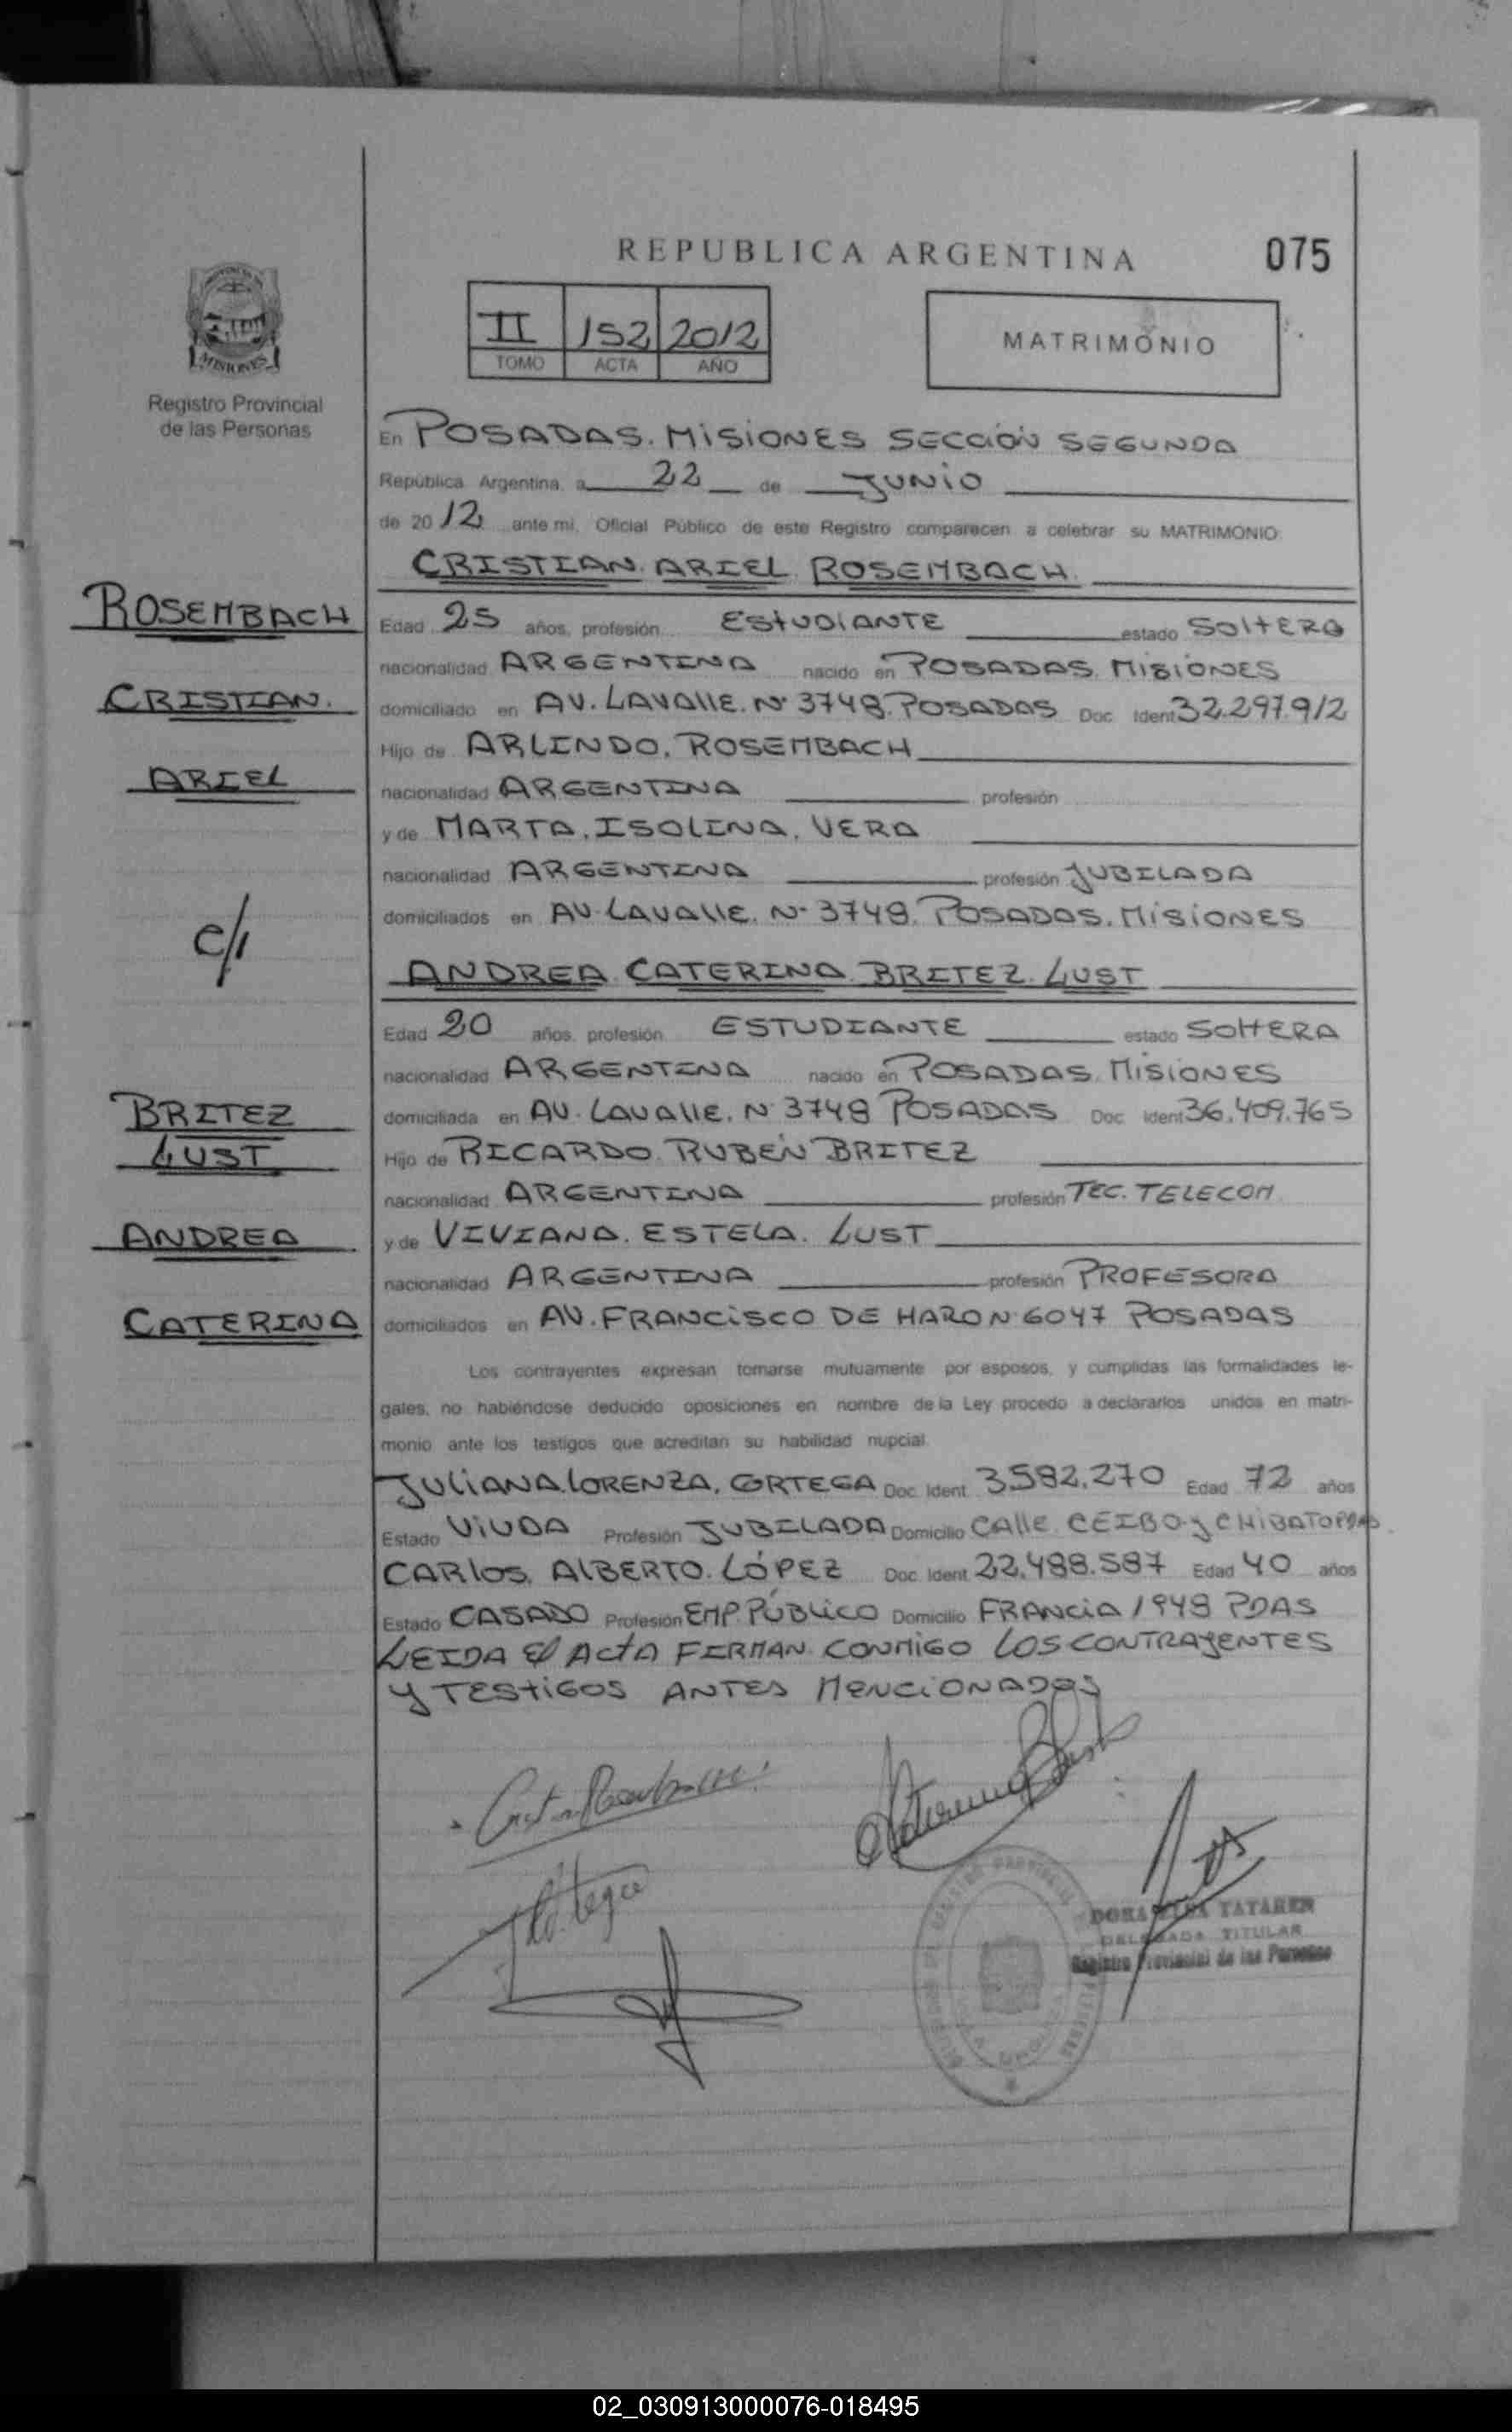 REPUBLICA ARGENTINA
075
II 152 2012
TOMO ACTA AÑO
MATRIMONIO
MISIONES
Registro Provincial
de las Personas
En POSADAS. MISIONES SECCIÓN SEGUNDA
República Argentina, a 22 de JUNIO
de 2012 ante mi, Oficial Público de este Registro comparecen a celebrar su MATRIMONIO:
CRISTIAN. ARIEL. ROSEMBACH.
ROSEMBACH
CRISTIAN.
ARIEL
c/
Edad 25 años, profesión ESTUDIANTE estado SOLTERO
nacionalidad ARGENTINA nacido en POSADAS. MISIONES
domiciliado en AV. LAVALLE. Nº 3748. POSADAS Doc. Ident. 32.297.912
Hijo de ARLINDO. ROSEMBACH
nacionalidad ARGENTINA profesión
y de MARTA. ISOLINA. VERA
nacionalidad ARGENTINA profesión JUBILADA
domiciliados en AV. LAVALLE. Nº 3748. POSADAS. MISIONES
ANDREA CATERINA BRITEZ. LUST
BRITEZ
LUST
ANDREA
CATERINA
Edad 20 años, profesión ESTUDIANTE estado SOLTERA
nacionalidad ARGENTINA nacido en POSADAS. MISIONES
domiciliada en AV. LAVALLE. N 3748 POSADAS Doc. Ident. 36.409.765
Hijo de RICARDO. RUBÉN BRITEZ
nacionalidad ARGENTINA profesión TEC. TELECOM
y de VIVIANA. ESTELA. LUST
nacionalidad ARGENTINA profesión PROFESORA
domiciliados en AV. FRANCISCO DE HARO N 6047 POSADAS
Los contrayentes expresan tomarse mutuamente por esposos, y cumplidas las formalidades le-
gales, no habiéndose deducido oposiciones en nombre de la Ley procedo a declararlos unidos en matri-
monio ante los testigos que acreditan su habilidad nupcial.
JULIANA. LORENZA. ORTEGA Doc. Ident. 3.582.270 Edad 72 años
Estado VIUDA Profesión JUBILADA Domicilio CALLE. CEIBO y CHIBATO PDAS
CARLOS. ALBERTO. LÓPEZ Doc. Ident. 22.488.587 Edad 40 años
Estado CASADO Profesión EMP. PÚBLICO Domicilio FRANCIA 1948 PDAS
LEIDA EL ACTA FIRMAN CONMIGO LOS CONTRAYENTES
Y TESTIGOS ANTES MENCIONADOS
DORA TATAREN
DELEGADA TITULAR
Registro Provincial de las Personas
02_030913000076-018495